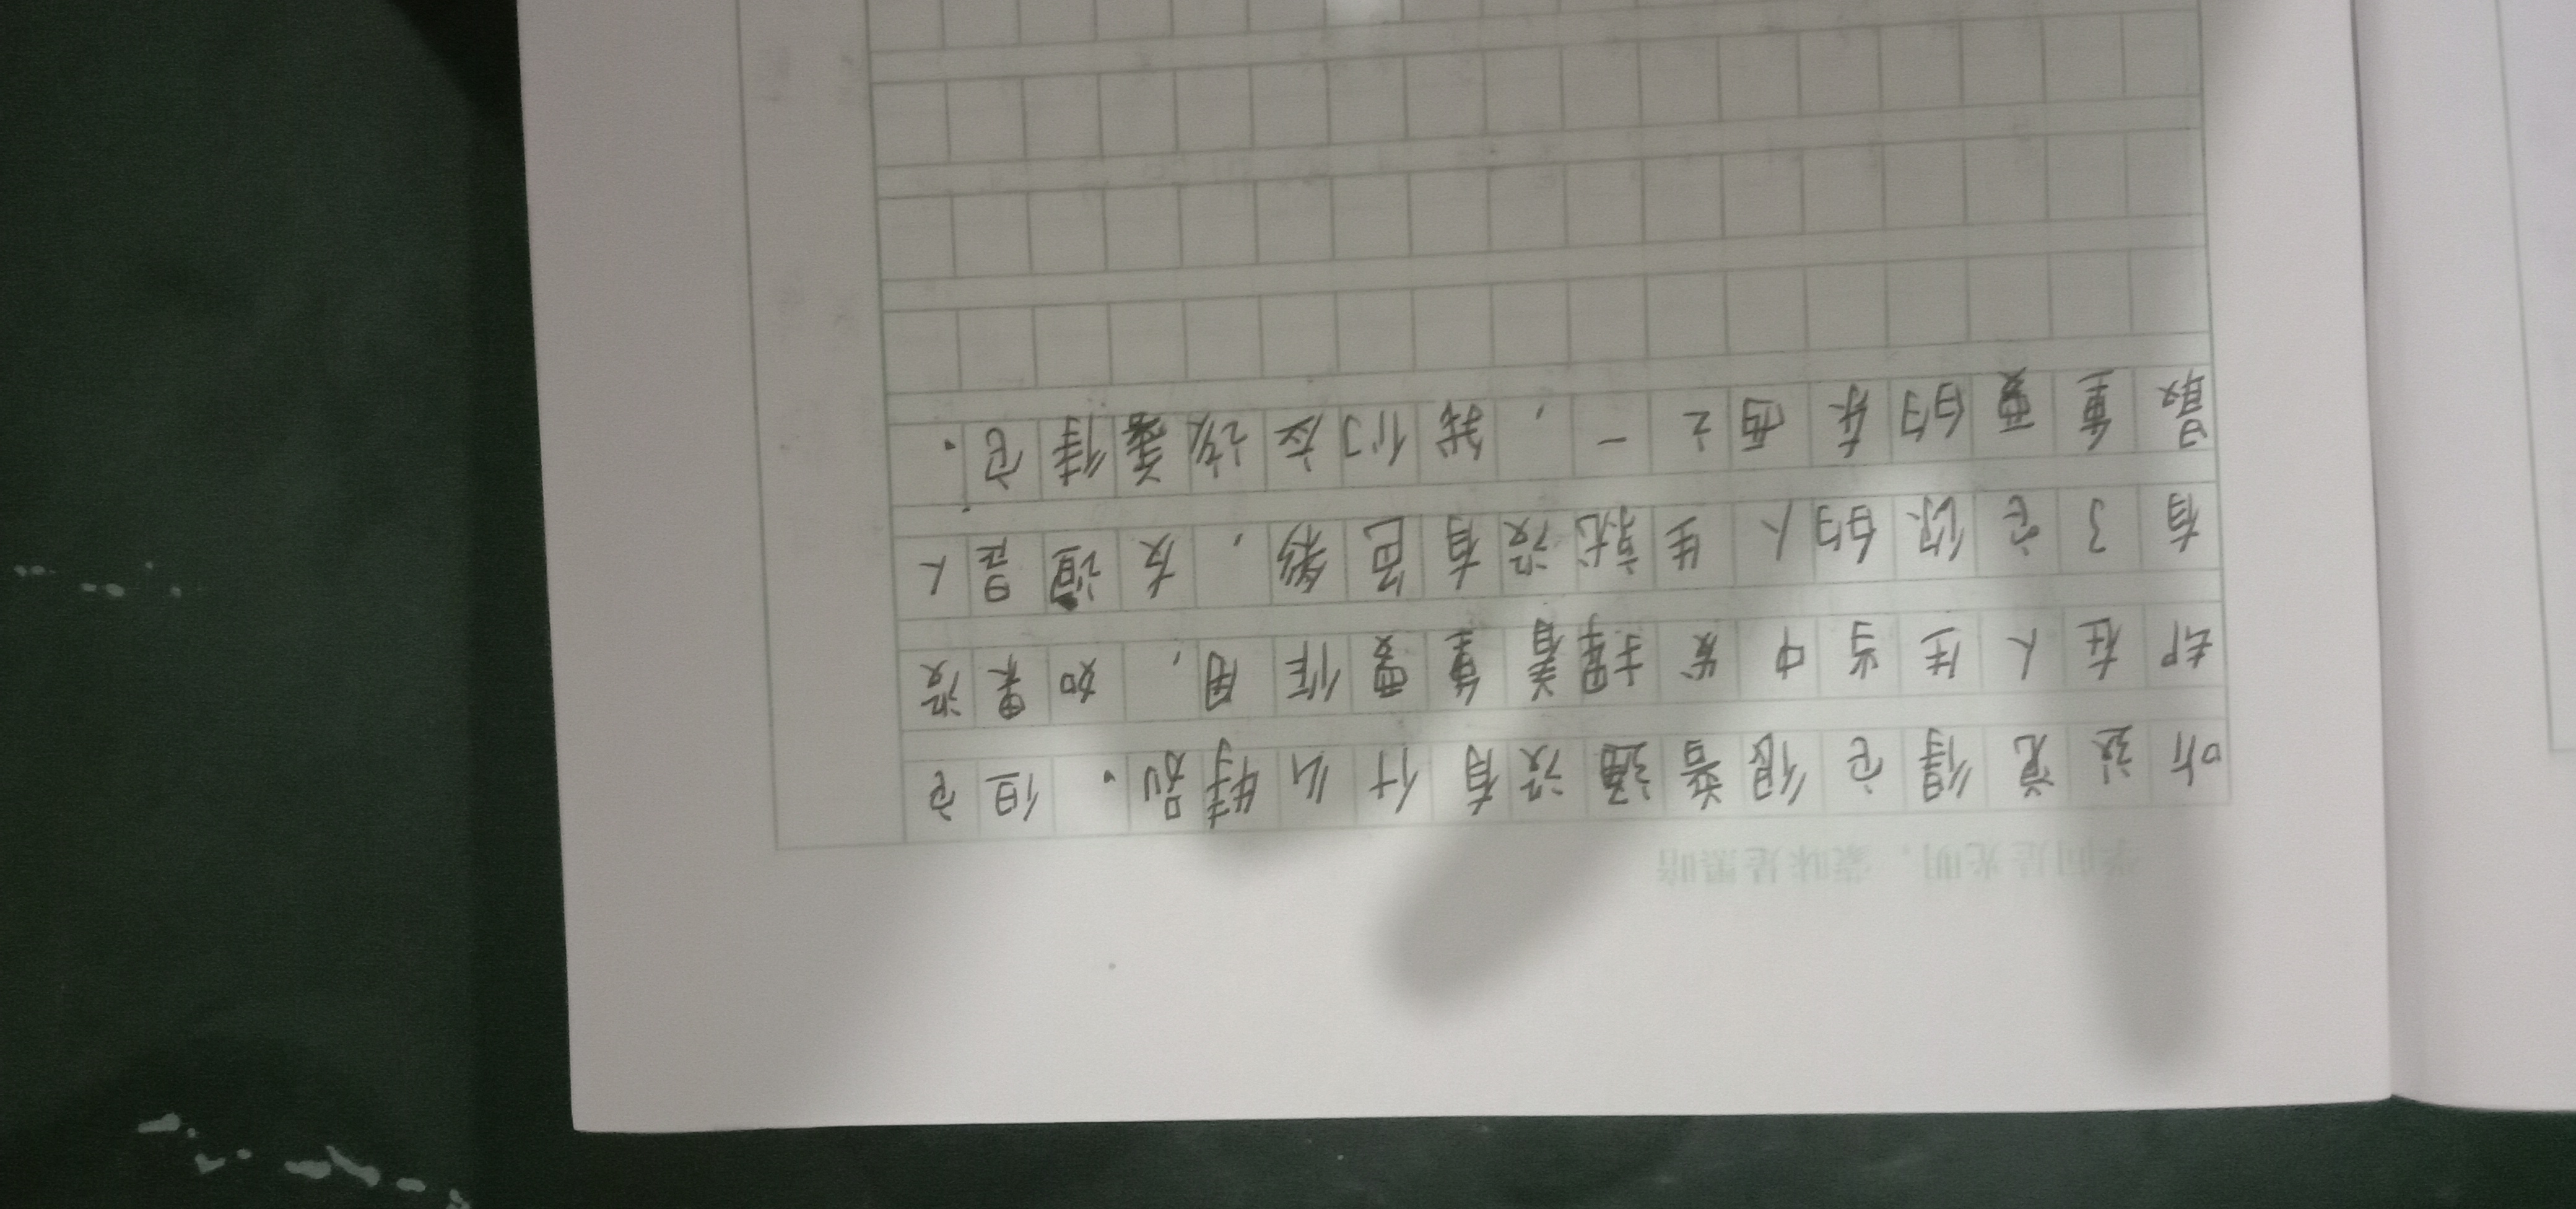 学问是光明，蒙昧是黑暗
听觉得它很普通没有什么特别。但它
却在人生当中发挥着重要作用，如果没
有了它你的人生就没有色彩，友谊是人
最重要的东西之一，我们应该善待它。